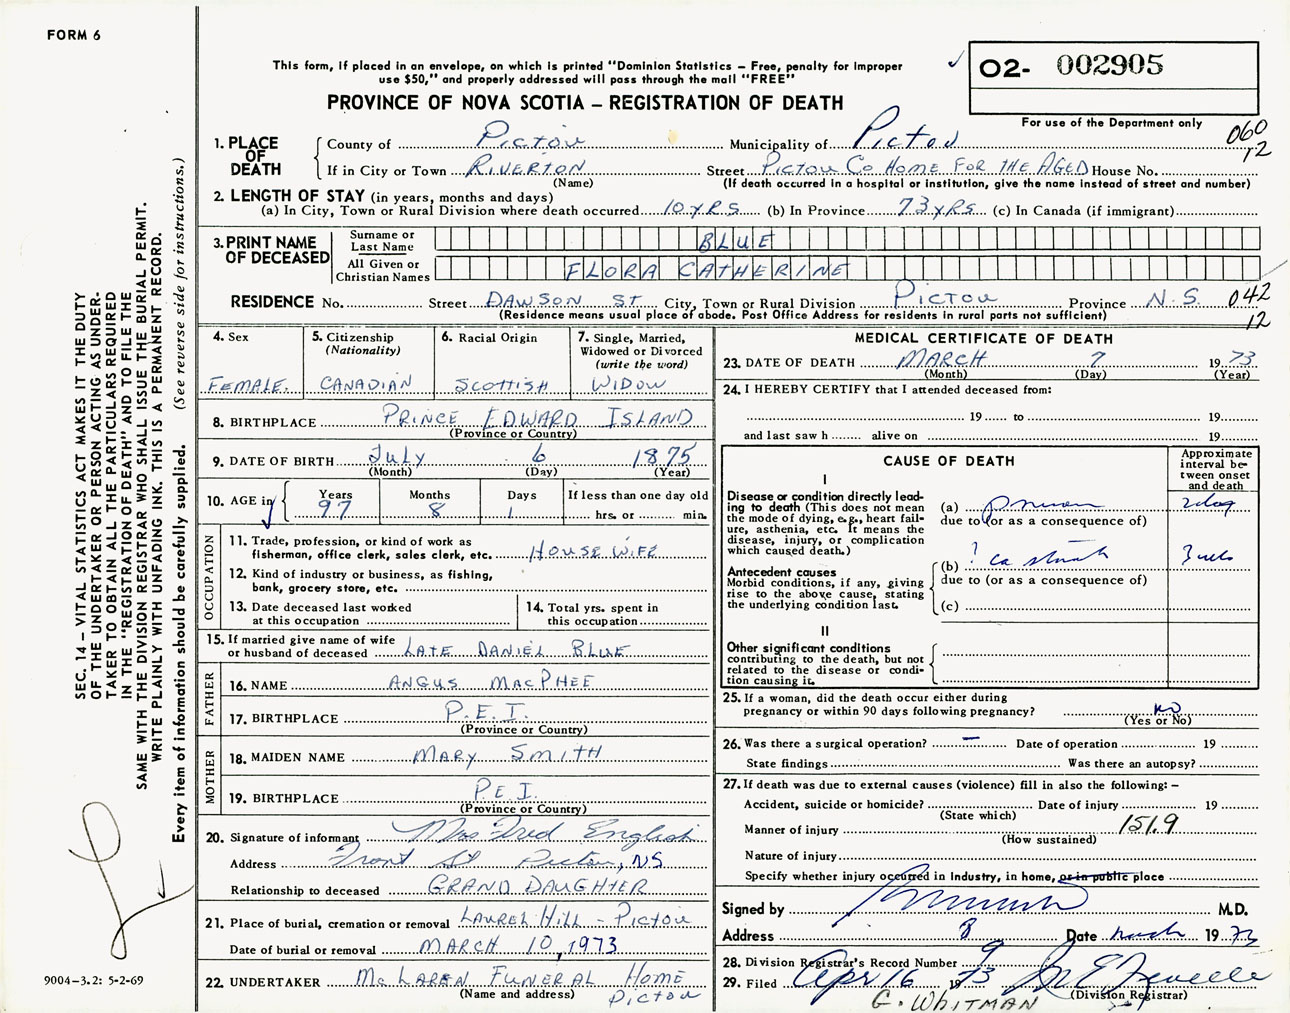 FORM 6
This form, if placed in an envelope, on which is printed "Dominion Statistics – Free, penalty for improper
use $50," and properly addressed will pass through the mail "FREE"
PROVINCE OF NOVA SCOTIA – REGISTRATION OF DEATH
O2- 002905
For use of the Department only
060
12
SEC. 14 – VITAL STATISTICS ACT MAKES IT THE DUTY
OF THE UNDERTAKER OR PERSON ACTING AS UNDER-
TAKER TO OBTAIN ALL THE PARTICULARS REQUIRED
IN THE "REGISTRATION OF DEATH" AND TO FILE THE
SAME WITH THE DIVISION REGISTRAR WHO SHALL ISSUE THE BURIAL PERMIT.
WRITE PLAINLY WITH UNFADING INK. THIS IS A PERMANENT RECORD.
Every item of information should be carefully supplied. (See reverse side for instructions.)
1. PLACE OF DEATH
County of Pictou Municipality of Pictou
If in City or Town Riverton Street Pictou Co Home For The Aged House No.
(Name) (If death occurred in a hospital or institution, give the name instead of street and number)
2. LENGTH OF STAY (in years, months and days)
(a) In City, Town or Rural Division where death occurred 10 yrs (b) In Province 73 yrs (c) In Canada (if immigrant)
3. PRINT NAME OF DECEASED
Surname or Last Name BLUE
All Given or Christian Names FLORA CATHERINE
RESIDENCE No. Street Dawson St City, Town or Rural Division Pictou Province N.S. 042
(Residence means usual place of abode. Post Office Address for residents in rural parts not sufficient) 12
4. Sex Female.
5. Citizenship (Nationality) Canadian
6. Racial Origin Scottish
7. Single, Married, Widowed or Divorced (write the word) Widow
8. BIRTHPLACE Prince Edward Island
(Province or Country)
9. DATE OF BIRTH July 6 1875
(Month) (Day) (Year)
10. AGE in Years 97 Months 8 Days 1 If less than one day old
hrs. or min.
OCCUPATION
11. Trade, profession, or kind of work as
fisherman, office clerk, sales clerk, etc. House Wife
12. Kind of industry or business, as fishing,
bank, grocery store, etc.
13. Date deceased last worked
at this occupation
14. Total yrs. spent in
this occupation
15. If married give name of wife
or husband of deceased Late Daniel Blue
FATHER
16. NAME Angus MacPhee
17. BIRTHPLACE P.E.I.
(Province or Country)
MOTHER
18. MAIDEN NAME Mary Smith
19. BIRTHPLACE P.E.I.
(Province or Country)
20. Signature of informant Mrs Fred English
Address Front St Pictou, NS
Relationship to deceased Grand Daughter
21. Place of burial, cremation or removal Laurel Hill - Pictou
Date of burial or removal March 10, 1973
22. UNDERTAKER McLaren Funeral Home
(Name and address) Pictou
MEDICAL CERTIFICATE OF DEATH
23. DATE OF DEATH March 7 1973
(Month) (Day) (Year)
24. I HEREBY CERTIFY that I attended deceased from:
19 to 19
and last saw h alive on 19
CAUSE OF DEATH
Approximate interval between onset and death
I
Disease or condition directly lead-
ing to death (This does not mean
the mode of dying, e.g., heart fail-
ure, asthenia, etc. It means the
disease, injury, or complication
which caused death.)
(a)
due to (or as a consequence of)
Antecedent causes
Morbid conditions, if any, giving
rise to the above cause, stating
the underlying condition last.
(b) ? ca
due to (or as a consequence of)
(c)
II
Other significant conditions
contributing to the death, but not
related to the disease or condi-
tion causing it.
25. If a woman, did the death occur either during
pregnancy or within 90 days following pregnancy? no
(Yes or No)
26. Was there a surgical operation? – Date of operation 19
State findings Was there an autopsy?
27. If death was due to external causes (violence) fill in also the following: –
Accident, suicide or homicide? Date of injury 19
(State which)
Manner of injury 151.9
(How sustained)
Nature of injury
Specify whether injury occurred in Industry, in home, or in public place
Signed by M.D.
Address Date March 8 1973
28. Division Registrar's Record Number 9
29. Filed Apr 16 1973
(Division Registrar)
G. Whitman
9004-3.2: 5-2-69